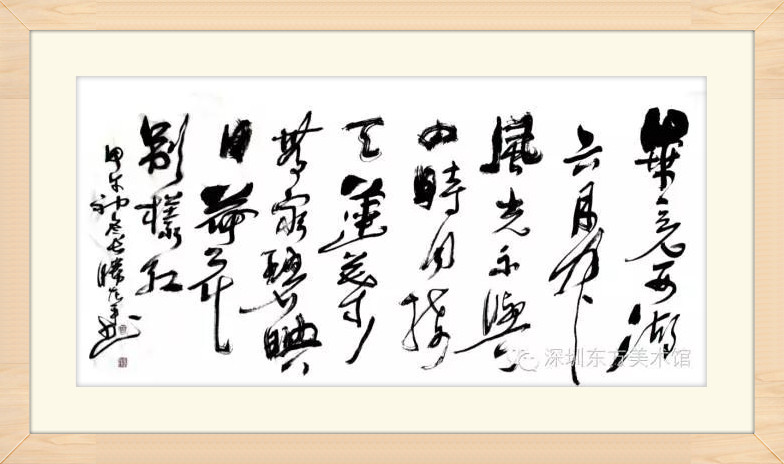 畢竟西湖
六月中
風光不與
四時同接
天蓮葉
無窮碧映
日荷花
別樣紅
甲午
深圳东方美术馆